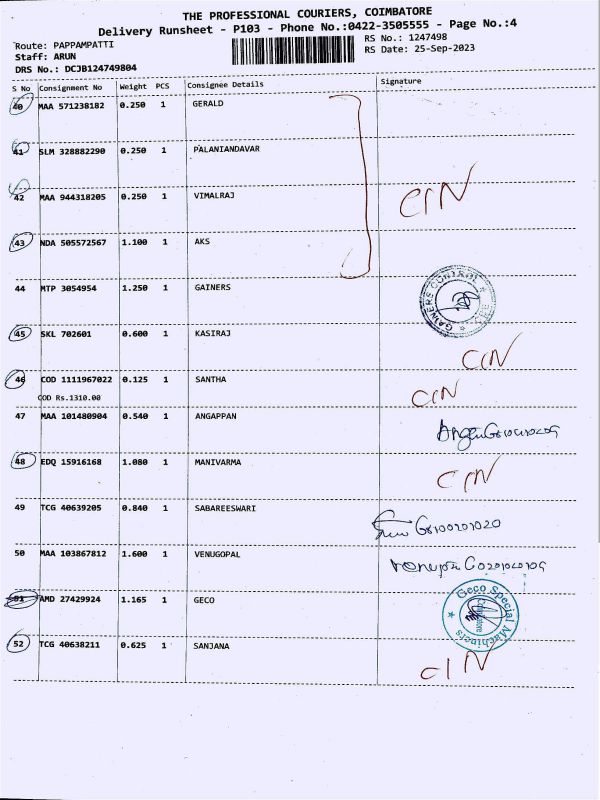 THE PROFESSIONAL COURIERS, COIMBATORE
Delivery Runsheet - P103 - Phone No.:0422-3505555 - Page No.:4
Route: PAPPAMPATTI
RS No.: 1247498
Staff: ARUN
RS Date: 25-Sep-2023
DRS No.: DCJB124749804
S No Consignment No Weight PCS Consignee Details Signature
40 MAA 571238182 0.250 1 GERALD
41 SLM 328882290 0.250 1 PALANIANDAVAR
42 MAA 944318205 0.250 1 VIMALRAJ CIN
43 NDA 505572567 1.100 1 AKS
44 MTP 3054954 1.250 1 GAINERS GAINERS CONTROL
45 SKL 702601 0.600 1 KASIRAJ CIN
46 COD 1111967022 0.125 1 SANTHA CIN
COD Rs.1310.00
47 MAA 101480904 0.540 1 ANGAPPAN
48 EDQ 15916168 1.080 1 MANIVARMA CIN
49 TCG 40639205 0.840 1 SABAREESWARI
50 MAA 103867812 1.600 1 VENUGOPAL
51 AMD 27429924 1.165 1 GECO Geco Special Machines
52 TCG 40638211 0.625 1 SANJANA CIN